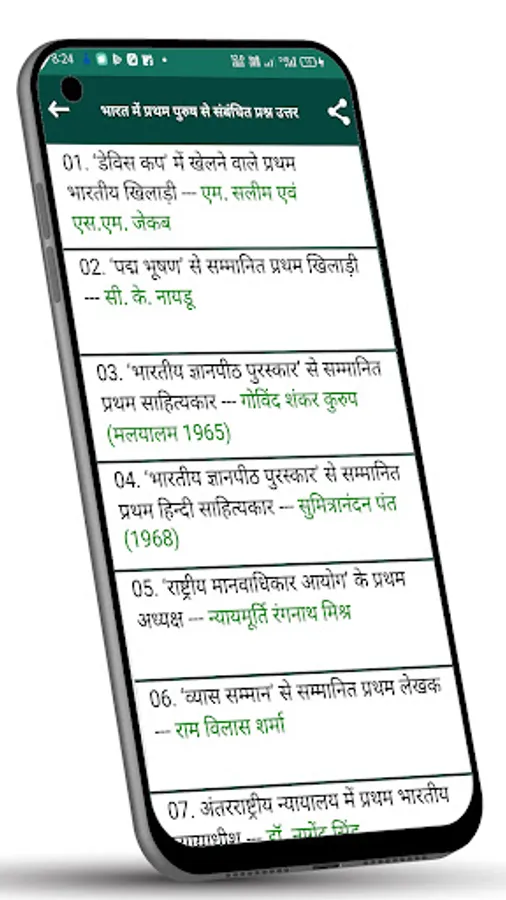 8:24
भारत में प्रथम पुरुष से संबंधित प्रश्न उत्तर
01. 'डेविस कप' में खेलने वाले प्रथम
भारतीय खिलाड़ी --- एम. सलीम एवं
एस.एम. जेकब
02. 'पद्म भूषण' से सम्मानित प्रथम खिलाड़ी
--- सी. के. नायडू
03. 'भारतीय ज्ञानपीठ पुरस्कार' से सम्मानित
प्रथम साहित्यकार --- गोविंद शंकर कुरुप
(मलयालम 1965)
04. 'भारतीय ज्ञानपीठ पुरस्कार' से सम्मानित
प्रथम हिन्दी साहित्यकार --- सुमित्रानंदन पंत
(1968)
05. 'राष्ट्रीय मानवाधिकार आयोग' के प्रथम
अध्यक्ष --- न्यायमूर्ति रंगनाथ मिश्र
06. 'व्यास सम्मान' से सम्मानित प्रथम लेखक
--- राम विलास शर्मा
07. अंतरराष्ट्रीय न्यायालय में प्रथम भारतीय
न्यायाधीश --- डॉ. नगेंद्र सिंह